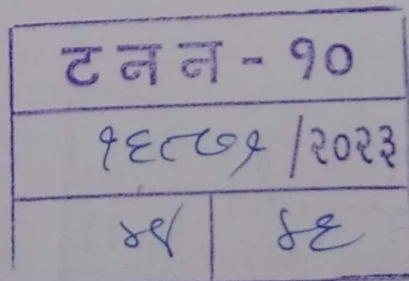 टनन - १०
१६८७१ /२०२३
४६